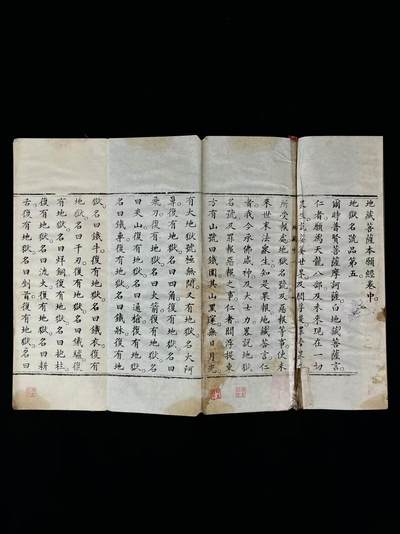 地藏菩薩本願經卷中。
地獄名號品第五。
爾時普賢菩薩摩訶薩白地藏菩薩言。
仁者願為天龍八部及未來現在一切
眾生說娑婆世界及閻浮提罪苦眾生
所受報處地獄名號及惡報等事使未
來世末法眾生知是果報地藏答言仁
者我今承佛威神及大士力畧說地獄
名號及罪報惡報之事仁者閻浮提東
方有山號曰鐵圍其山黑邃無日月光
有大地獄號極無間又有地獄名大阿
鼻復有地獄名曰四角復有地獄名曰
飛刀復有地獄名曰火箭復有地獄名
曰夾山復有地獄名曰通槍復有地獄
名曰鐵車復有地獄名曰鐵牀復有地
獄名曰鐵牛復有地獄名曰鐵衣復有
地獄名曰千刃復有地獄名曰鐵驢復
有地獄名曰烊銅復有地獄名曰抱柱
復有地獄名曰流火復有地獄名曰耕
舌復有地獄名曰剉首復有地獄名曰